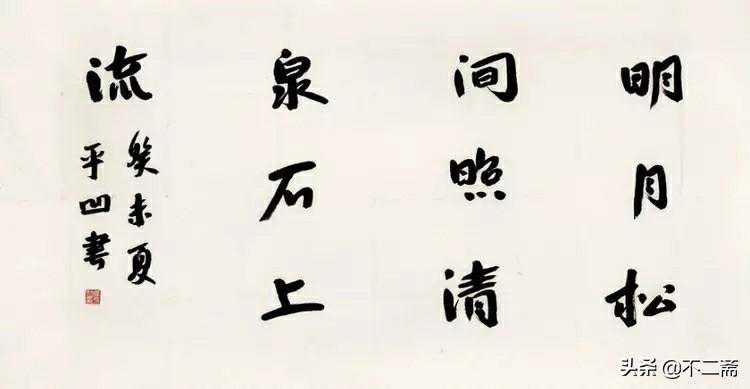 明月松
间照清
泉石上
流
癸未夏
平凹書
头条@不二斋